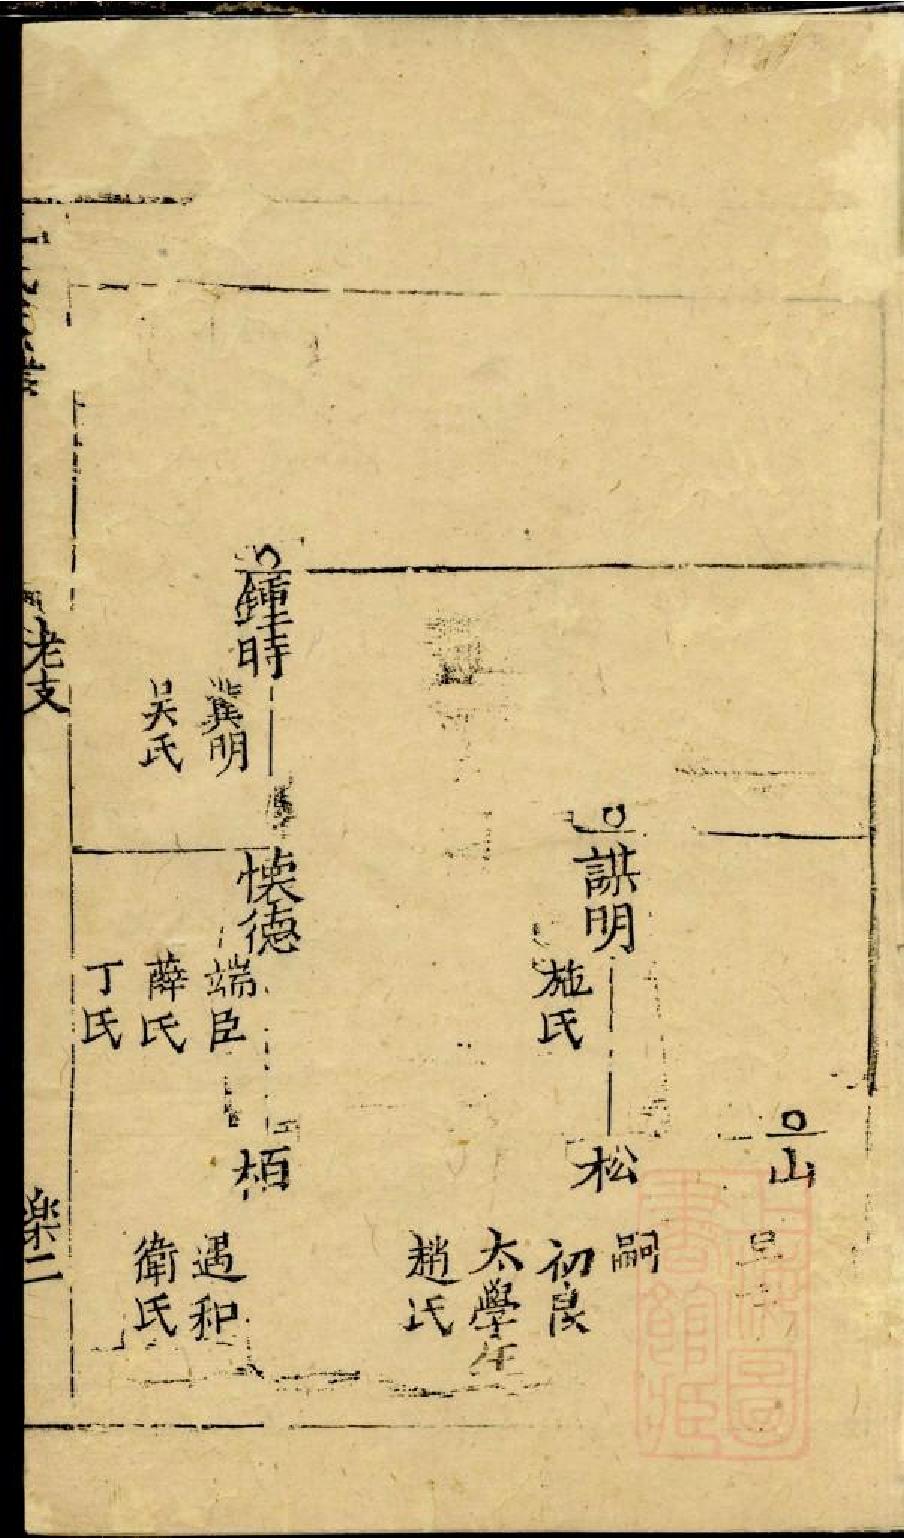 山
謀明
施氏
松
嗣
初良
太學生
趙氏
鍾時
龔明
吴氏
懐德
端臣
薛氏
丁氏
栢
遇和
衛氏
老支
樂二